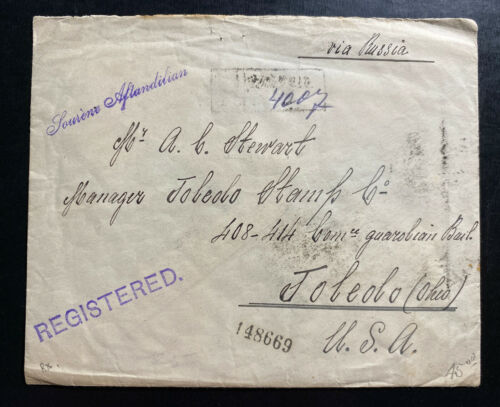 via Russia
Sourèno Aftandilian
4007
Mr A. C. Stewart
Manager Toledo Stamp Co
408-414 Comce guardian Buil.
Toledo (Ohio)
REGISTERED.
148669
U. S. A.